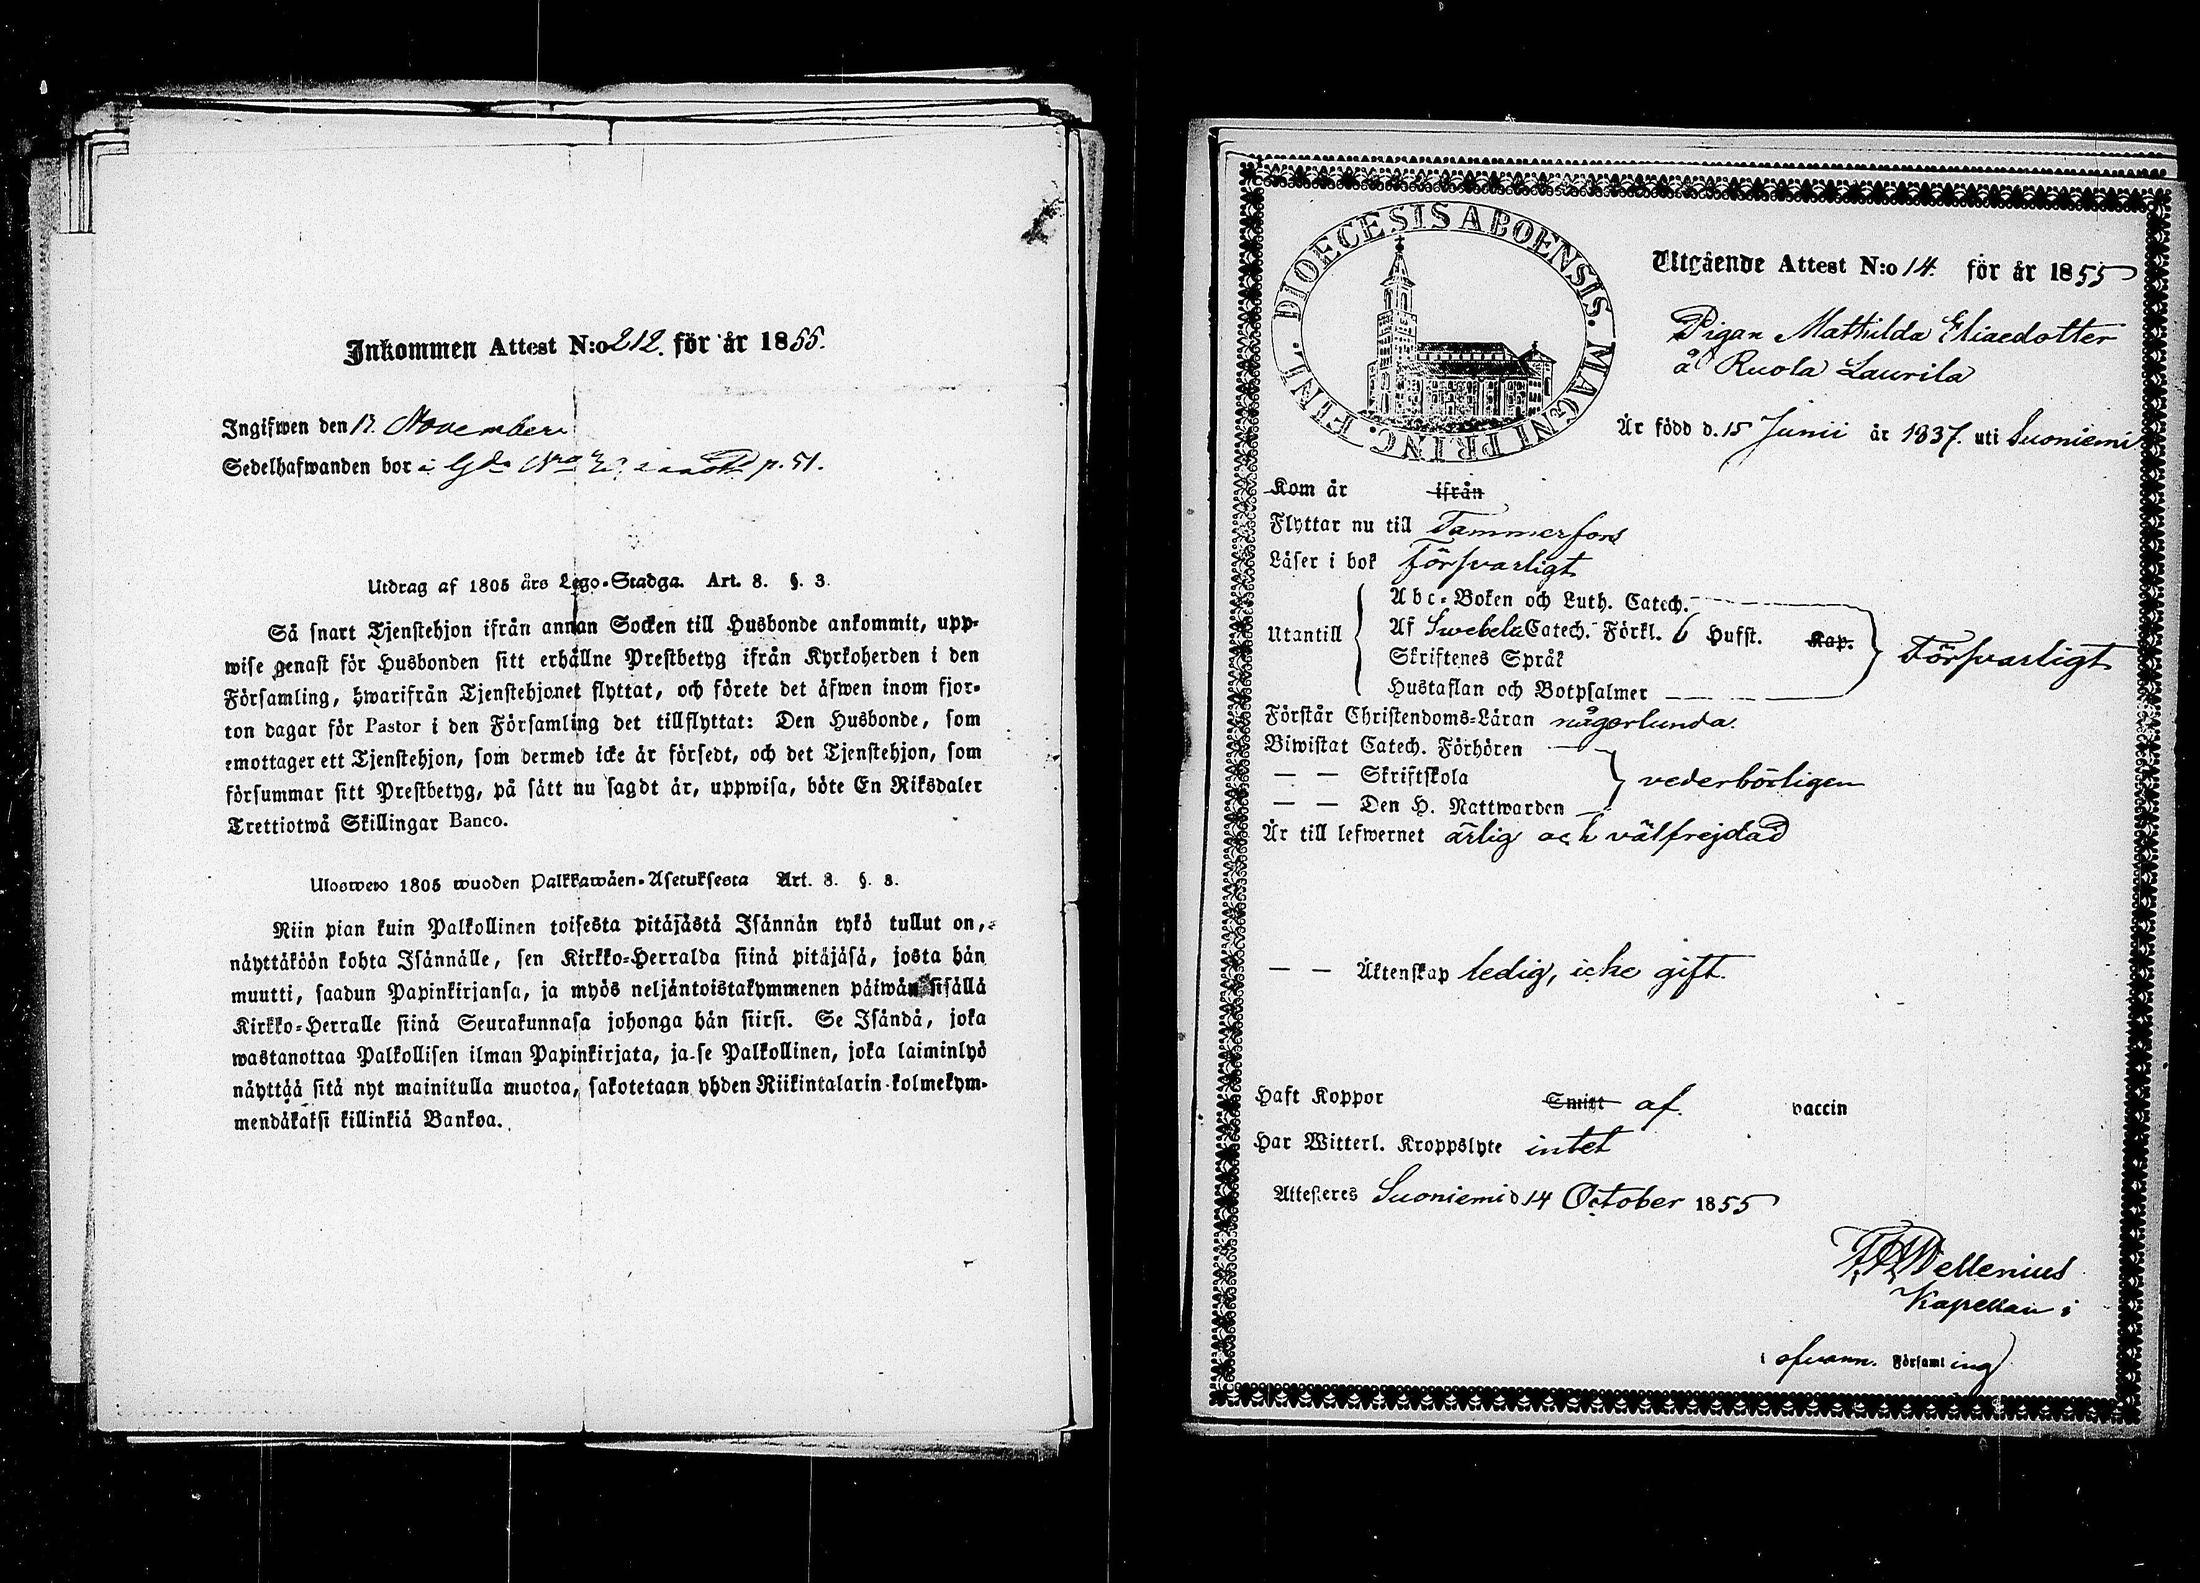 Inkommen Attest N:o 212. för år 1855.
Ingifwen den 17. November
Sedelhafwanden bor i Gde Nro p. 51.
Utdrag af 1805 års Lego-Stadga. Art. 8. §. 3.
Så snart Tjenstehjon ifrån annan Socken till Husbonde ankommit, upp-
wise genast för Husbonden sitt erhållne Prestbetyg ifrån Kyrkoherden i den
Församling, hwarifrån Tjenstehjonet flyttat, och förete det äfwen inom fjor-
ton dagar för Pastor i den Församling det tillflyttat: Den Husbonde, som
emottager ett Tjenstehjon, som dermed icke är försedt, och det Tjenstehjon, som
försummar sitt Prestbetyg, på sätt nu sagdt är, uppwisa, böte En Riksdaler
Trettiotwå Skillingar Banco.
Ulosweto 1805 wuoden Palkkawäen-Asetuksesta Art. 8. §. 3.
Niin pian kuin Palkollinen toisesta pitäjästä Isännän tykö tullut on,
näyttäköön kohta Isännälle, sen Kirkko-Herralda siinä pitäjäsä, josta hän
muutti, saadun Papinkirjansa, ja myös neljäntoistakymmenen päiwän sisällä
Kirkko-Herralle siinä Seurakunnasa johonga hän siirsi. Se Isändä, joka
wastanottaa Palkollisen ilman Papinkirjata, ja se Palkollinen, joka laiminlyö
näyttää sitä nyt mainitulla muotoa, sakotetaan yhden Riikintalarin kolmekym-
mendäkaksi killinkiä Bankoa.
DIOECESIS ABOENSIS. MAGNI PRINC. FINL.
Utgående Attest N:o 14. för år 1855
Pigan Mathilda Eliaedotter
å Ruola Laurila
Är född d. 15 Junii år 1837. uti Suoniemi
Kom år ifrån
Flyttar nu till Tammerfors
Läser i bok försvarligt
Utantill
Abc-Boken och Luth. Catech.
Af Swebelii Catech. Förkl. 6 Hufst. Kap.
Skriftenes Språk
Hustaflan och Botpsalmer
Försvarligt
Förstår Christendoms-Läran någorlunda.
Biwistat Catech. Förhören
— — Skriftskola
— — Den H. Nattwarden
vederbörligen
Är till lefwernet ärlig och välfrejdad
— — Äktenskap ledig, icke gift.
Haft Koppor Smitt af. vaccin
Har Witterl. Kroppslyte intet
Attesteres Suoniemi d 14 October 1855
Wellenius
Kapellan i
ofvann. Församling